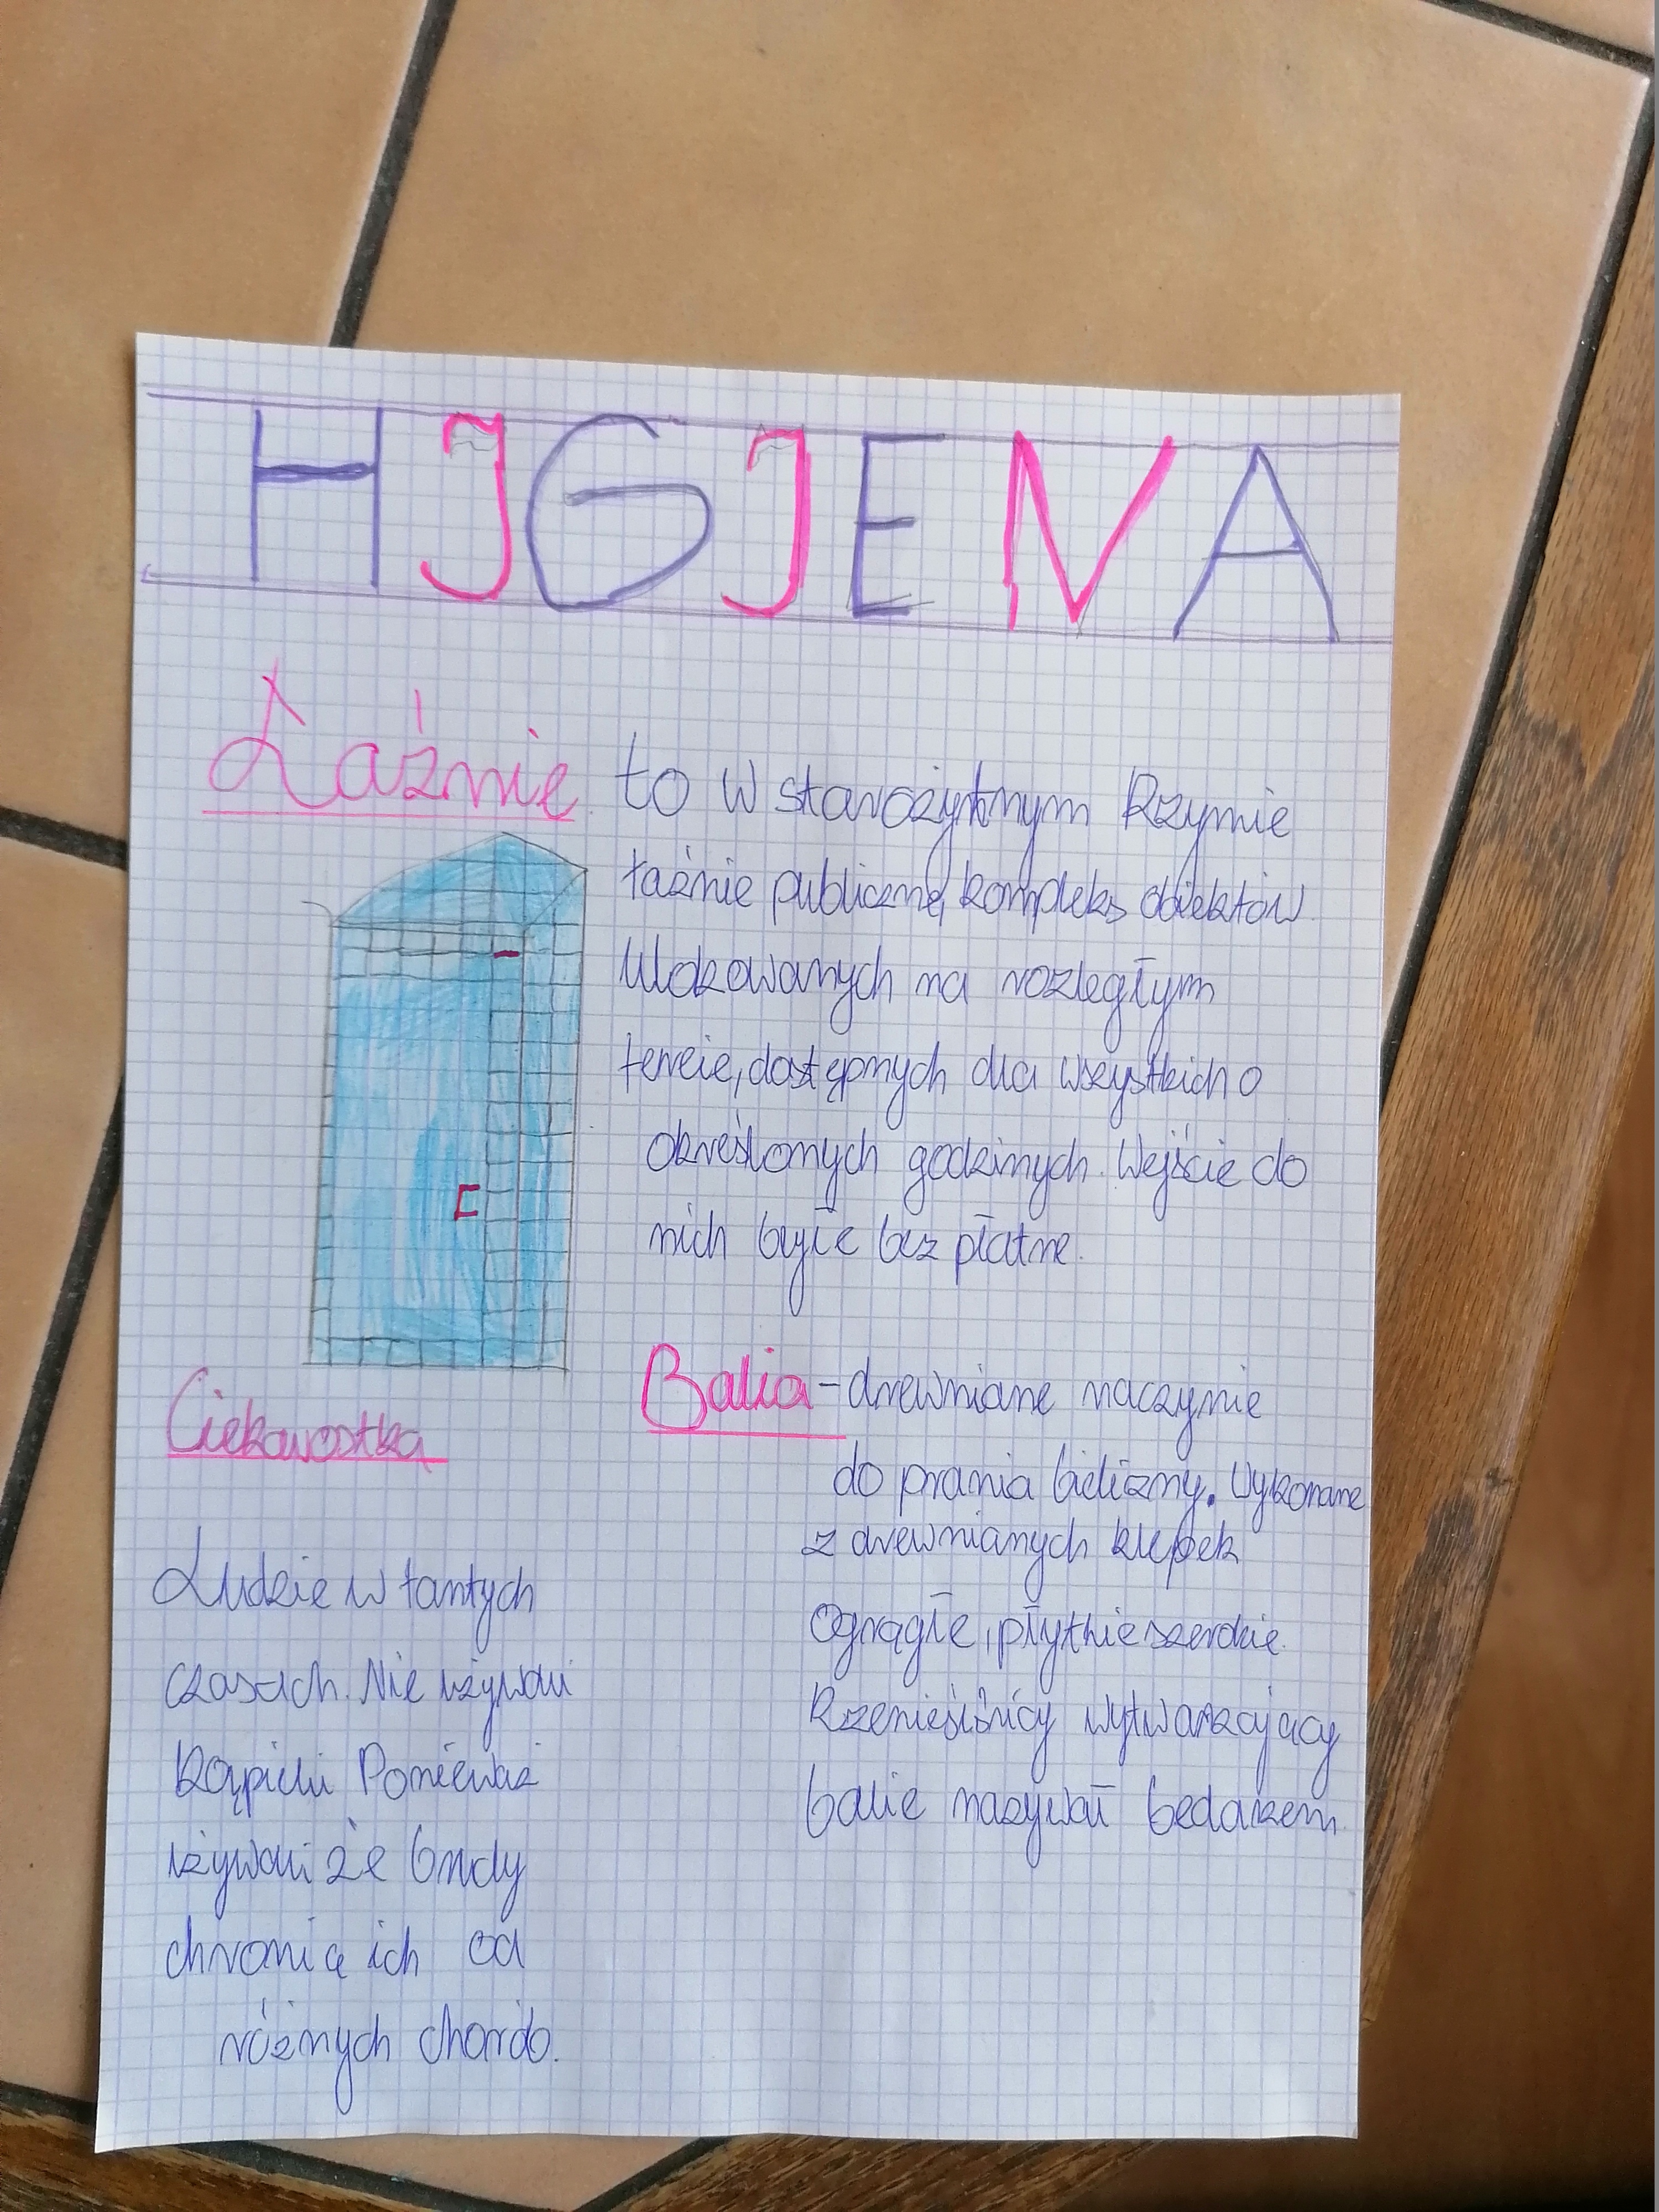 HJGJENA
Łaźnie to w starożytnym Rzymie
łaźnie publiczne, kompleks obiektów
Ulokowanych na rozległym
tereie, dostępnych dla wszystkich o
określonych godzinych. Wejście do
nich byłe bez płatne.
Balia - drewniane naczynie
do prania bielizny. Wykonane
z drewnianych klepek
Ogrągłe, płytkie szerokie.
Rzemieślnicy wytwarzający
balie nazywał bednarzem.
Ciekawostka
Ludzie w tamtych
czasach. Nie używali
Kąpieli Ponieważ
używali że brudy
chronią ich od
różnych chorób.